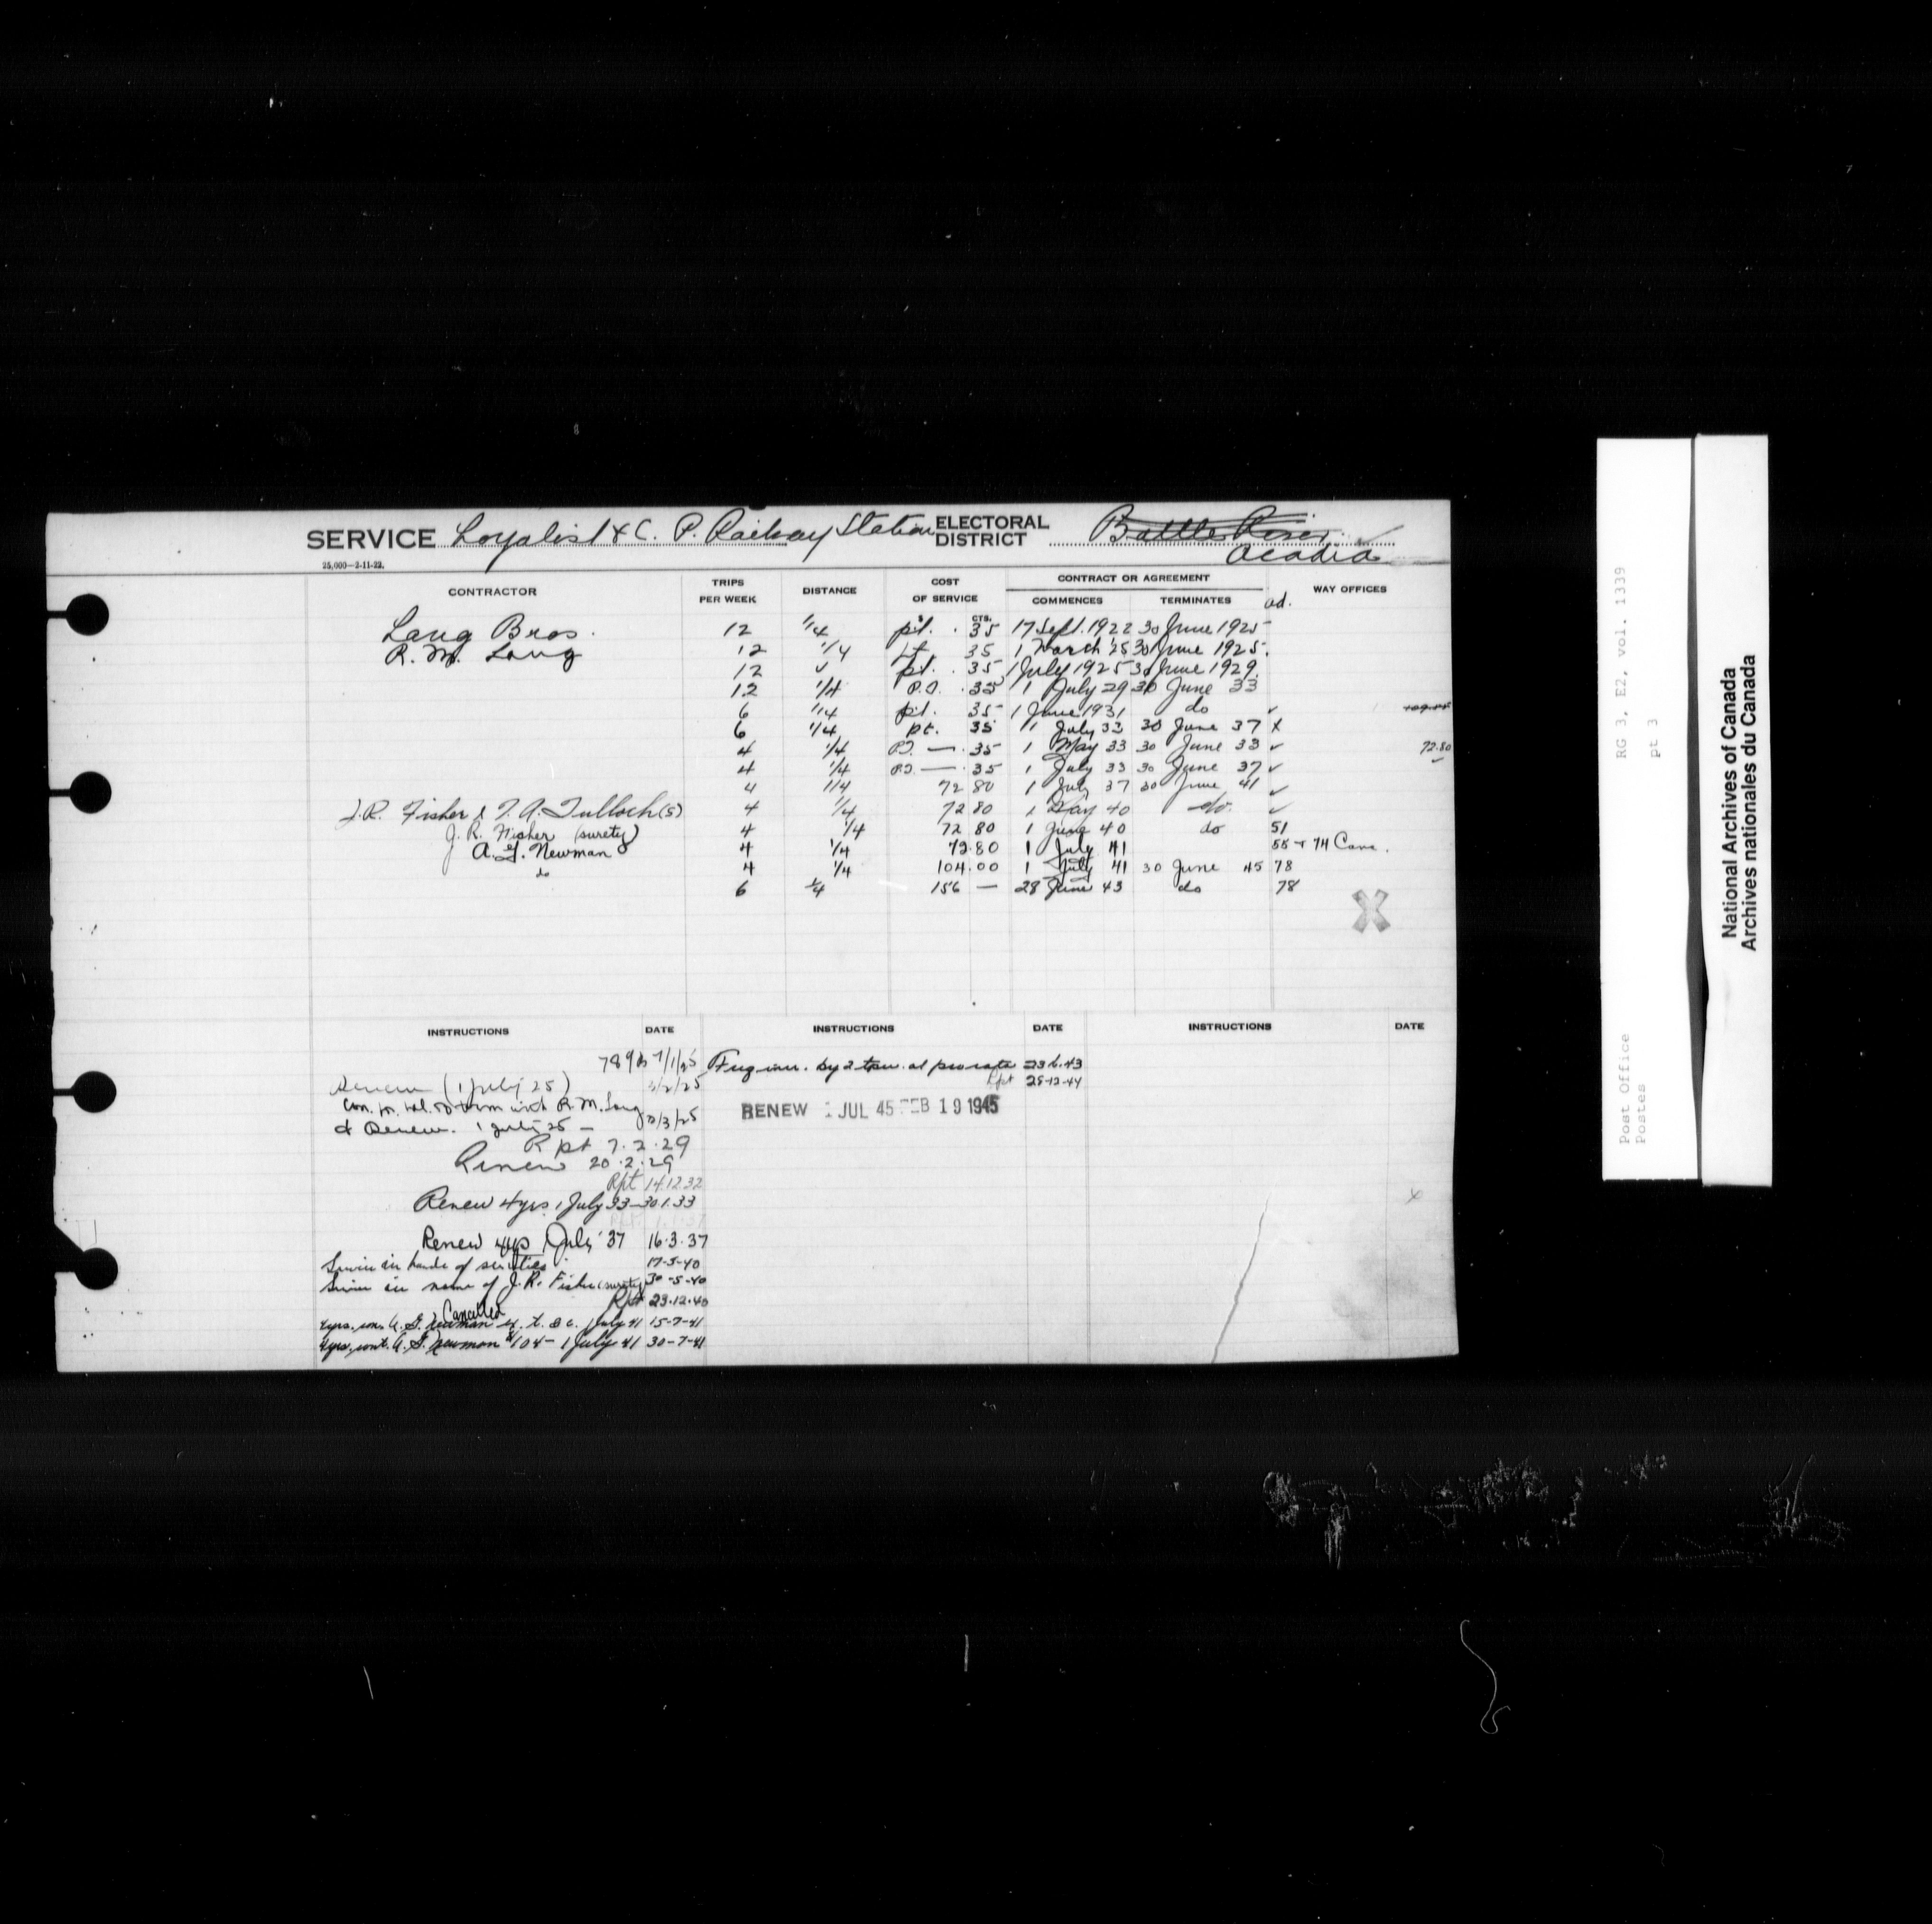 SERVICE Loyalist & C. P. Railway Station ELECTORAL DISTRICT Battle River
Acadia
25,000—2-11-22.
CONTRACTOR TRIPS PER WEEK DISTANCE COST OF SERVICE CONTRACT OR AGREEMENT COMMENCES TERMINATES ad. WAY OFFICES
$ CTS.
Lang Bros. 12 1/4 p.t. . 35 17 Sept. 1922 30 June 1925
R. M. Lang 12 1/4 35 1 March '25 30 June 1925.
12 ✓ p.t. . 35 1 July 1925 30 June 1929.
12 1/4 P.T. . 35 1 July 29 30 June 33
6 1/4 p.t. 35 1 June 1931 do ✓
6 1/4 p.t. 35 1 July 33 30 June 37 X
4 1/4 P.T. — . 35 1 May 33 30 June 33 ✓ 72.80
4 1/4 P.T. — . 35 1 July 33 30 June 37 ✓
4 1/4 72 80 1 July 37 30 June 41 ✓
J. R. Fisher & T. A. Tulloch (s) 4 1/4 72 80 1 May 40 do ✓
J. R. Fisher (surety) 4 1/4 72 80 1 June 40 do 51
A. G. Newman 4 1/4 72.80 1 July 41 55 + 74 Canc.
do 4 1/4 104.00 1 July 41 30 June 45 78
6 1/4 156 — 28 June 43 do 78
X
INSTRUCTIONS DATE INSTRUCTIONS DATE INSTRUCTIONS DATE
7/1/25
Renew (1 July 25) /2/25
with R. M. Lang
& Renew. 1 July 25 — /3/25
Rpt 7.2.29
Renew 20.2.29
Rpt 14.12.32
Renew 4 yrs. 1 July 33 — 30.1.33
Renew 4 yrs 1 July '37 16.3.37
Service in hands of sureties 17-5-40
Service in name of J. R. Fisher (surety) 30-5-40
Rpt 23.12.40
Cancelled
4 yrs. A. G. Newman 1 July 41 15-7-41
4 yrs. cont. A. G. Newman $104— 1 July 41 30-7-41
Freq incr. by 2 at pro rata 23.6.43
Rpt 28-12-44
RENEW 1 JUL 45 FEB 19 1945
RG 3, E2, vol. 1339
pt 3
Post Office
Postes
National Archives of Canada
Archives nationales du Canada